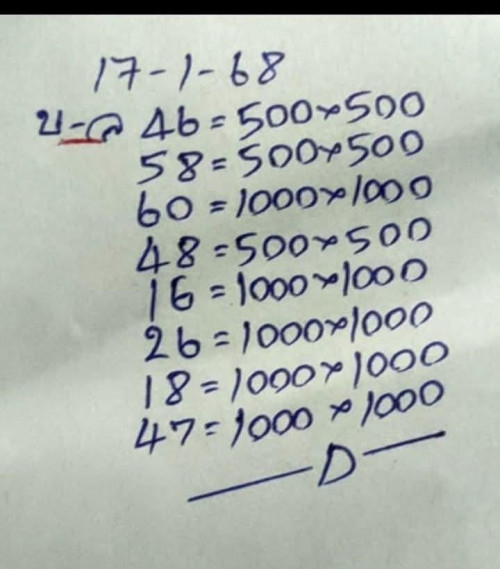 17-1-68
บ-ล 46=500×500
58=500×500
60=1000×1000
48=500×500
16=1000×1000
26=1000×1000
18=1000×1000
47=1000×1000
D